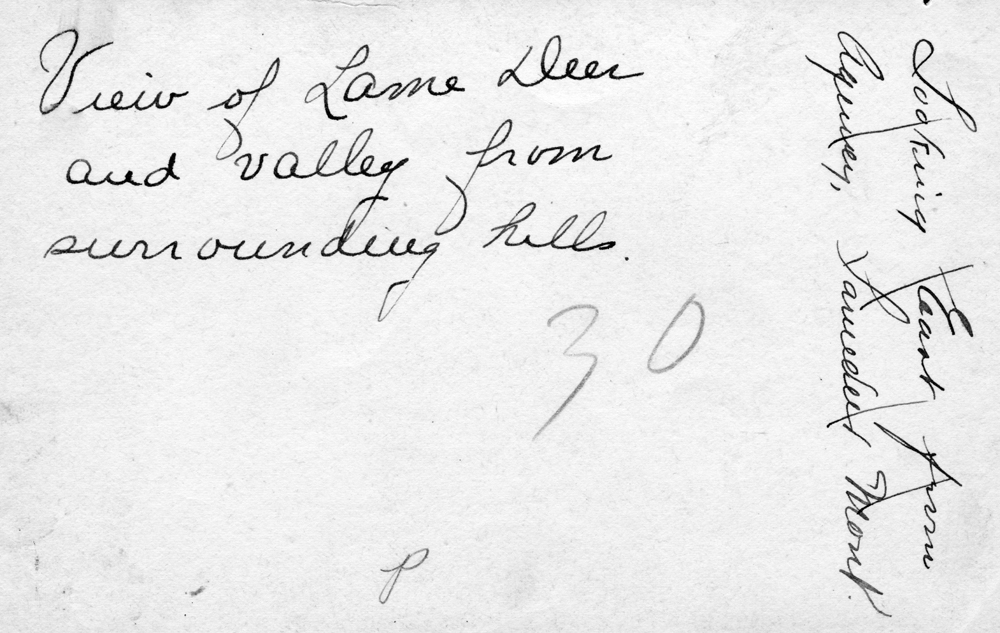 View of Lame Deer
and valley from
surrounding hills.
30
P
Looking East from
Agency, Lamedeer Mont.